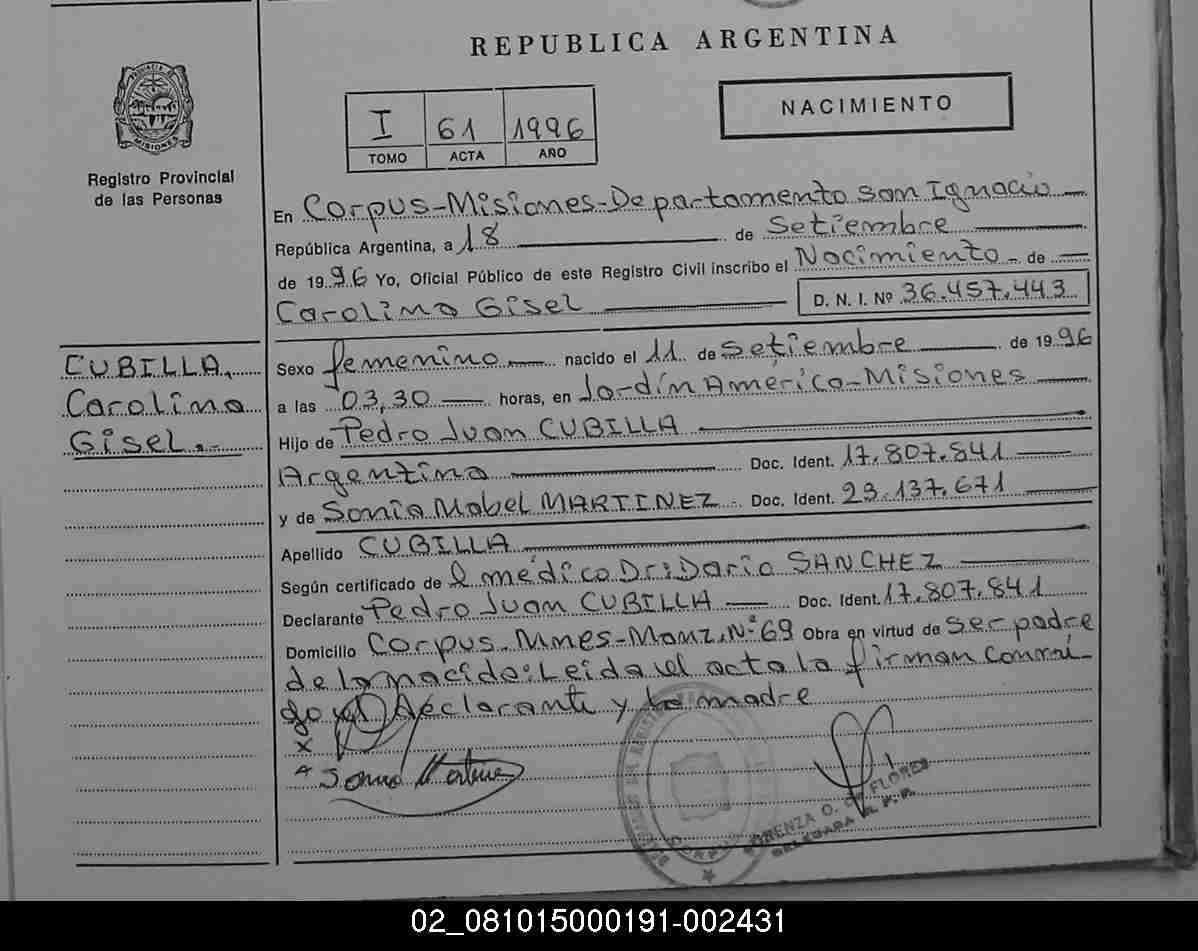 REPUBLICA ARGENTINA
PROVINCIA DE MISIONES
Registro Provincial
de las Personas
I 61 1996
TOMO ACTA AÑO
NACIMIENTO
En Corpus-Misiones-Departamento San Ignacio
República Argentina, a 18 de Setiembre
de 1996 Yo, Oficial Público de este Registro Civil inscribo el Nacimiento - de
Carolina Gisel D. N. I. Nº 36.457.443
CUBILLA,
Carolina
Gisel.-
Sexo femenino nacido el 11 de Setiembre de 1996
a las 03,30 horas, en Jardín América-Misiones
Hijo de Pedro Juan CUBILLA
Argentino Doc. Ident. 17.807.841
y de Sonia Mabel MARTINEZ - Doc. Ident. 23.137.671
Apellido CUBILLA
Según certificado de el médico Dr: Dario SANCHEZ
Declarante Pedro Juan CUBILLA Doc. Ident. 17.807.841
Domicilio Corpus. Mnes-Manz. Nº 69 Obra en virtud de ser padre
de la nacido: Leida el acta la firman conmi-
go el declarante y la madre
x
Sonia Martinez
CORPUS
LORENZA O. de FLORES
DELEGADA R. P. P.
02_081015000191-002431